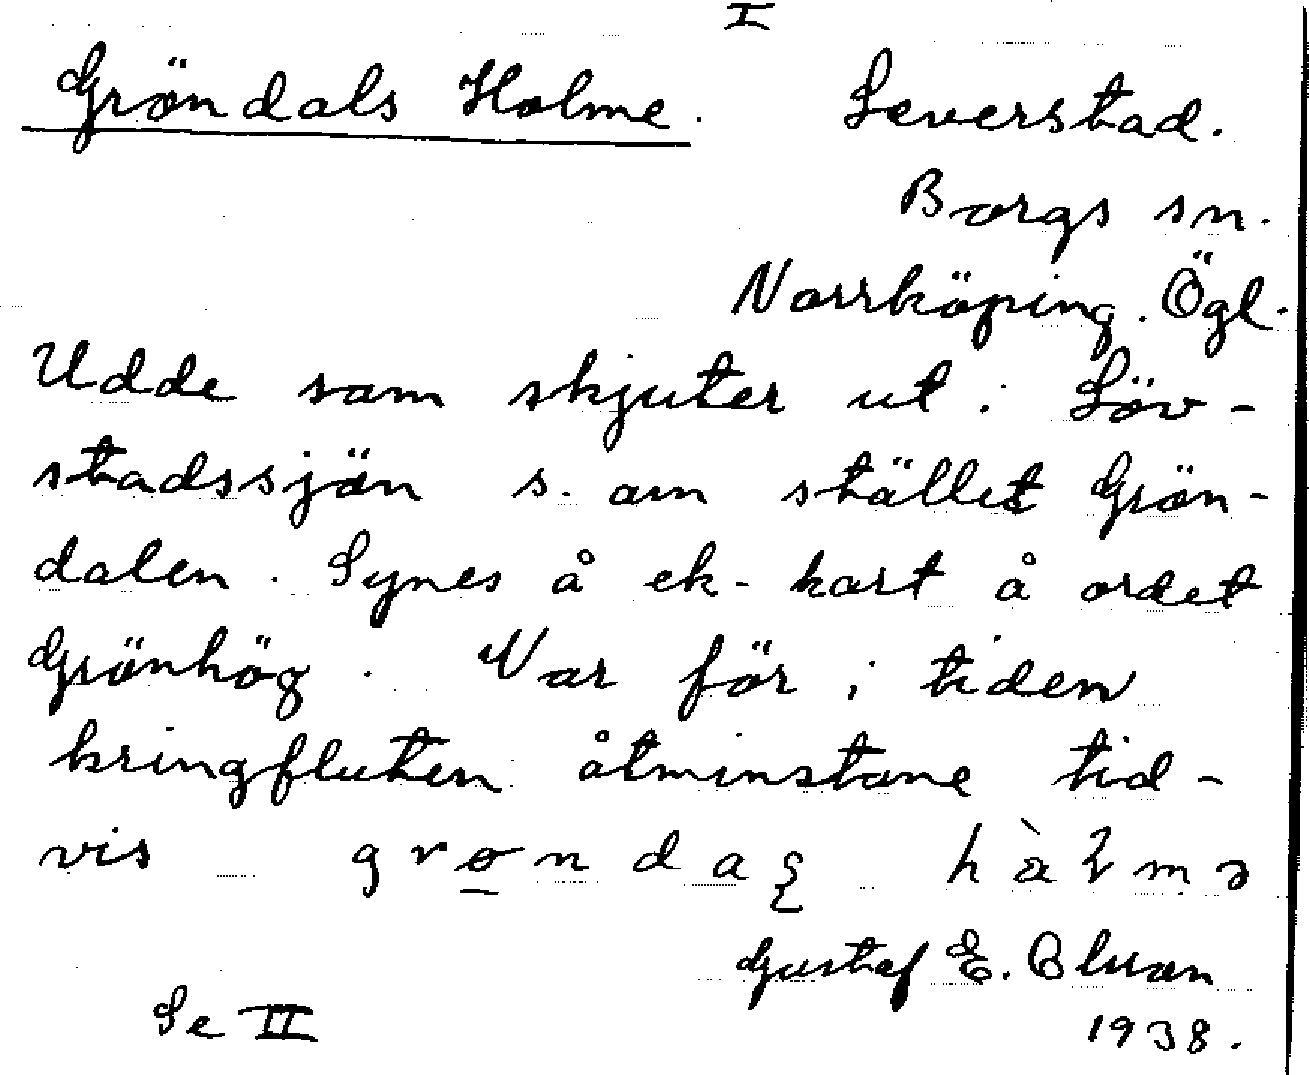 I
Gröndals Holme. Leverstad.
Borgs sn.
Norrköping. Ögl.
Udde som skjuter ut i Löv-
stadssjön s. om stället Grön-
dalen. Synes å ek-kart å ordet
Grönhög. Var för i tiden
kringfluten åtminstone tid-
vis
Gustaf E.
Se II 1938.